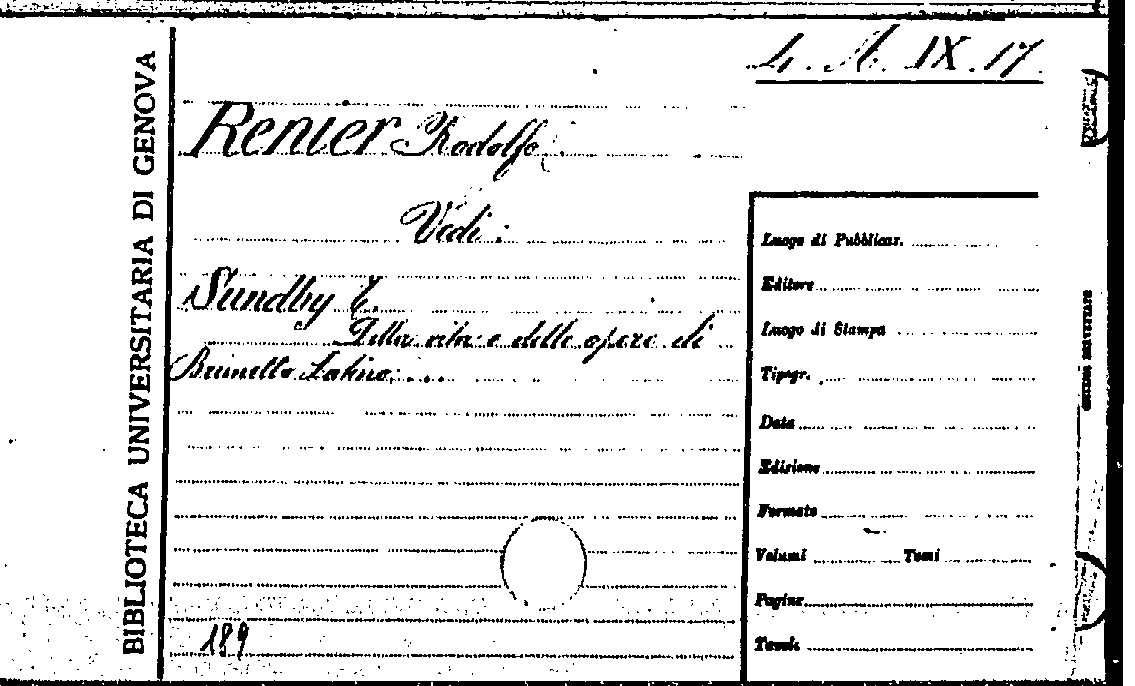 4. A. IX. 17
Renier Rodolfo.
Vedi:
Sundby T.
Della vita e delle opere di
Brunetto Latino; ...
189
BIBLIOTECA UNIVERSITARIA DI GENOVA
Luogo di Pubblicaz.
Editore
Luogo di Stampa
Tipogr.
Data
Edizione
Formato
Volumi Tomi
Pagine
Tavole